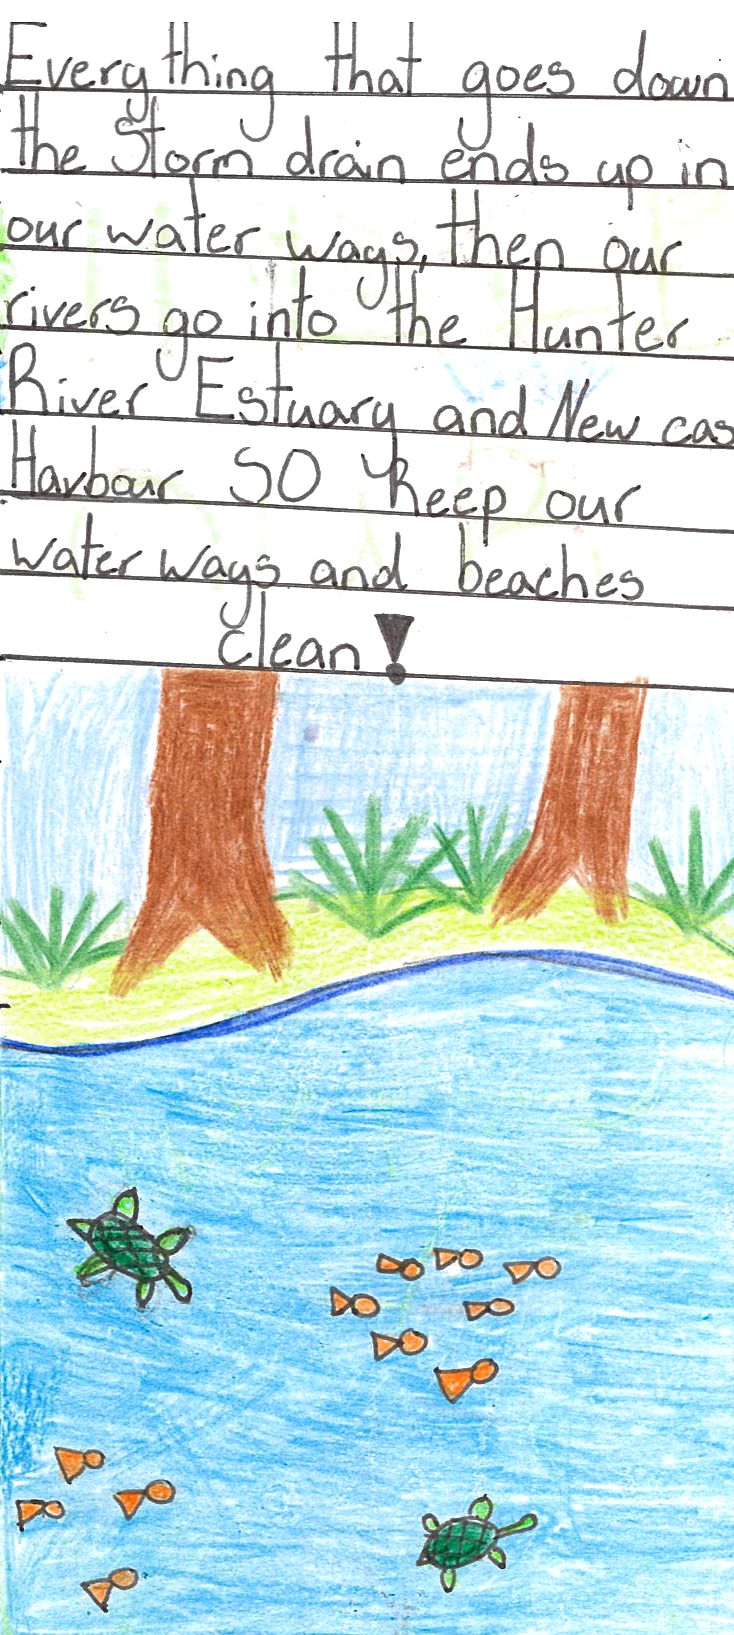 Everything that goes down
the Storm drain ends up in
our water ways, then our
rivers go into the Hunter
River Estuary and New cas
Harbour SO Keep our
water ways and beaches
clean!